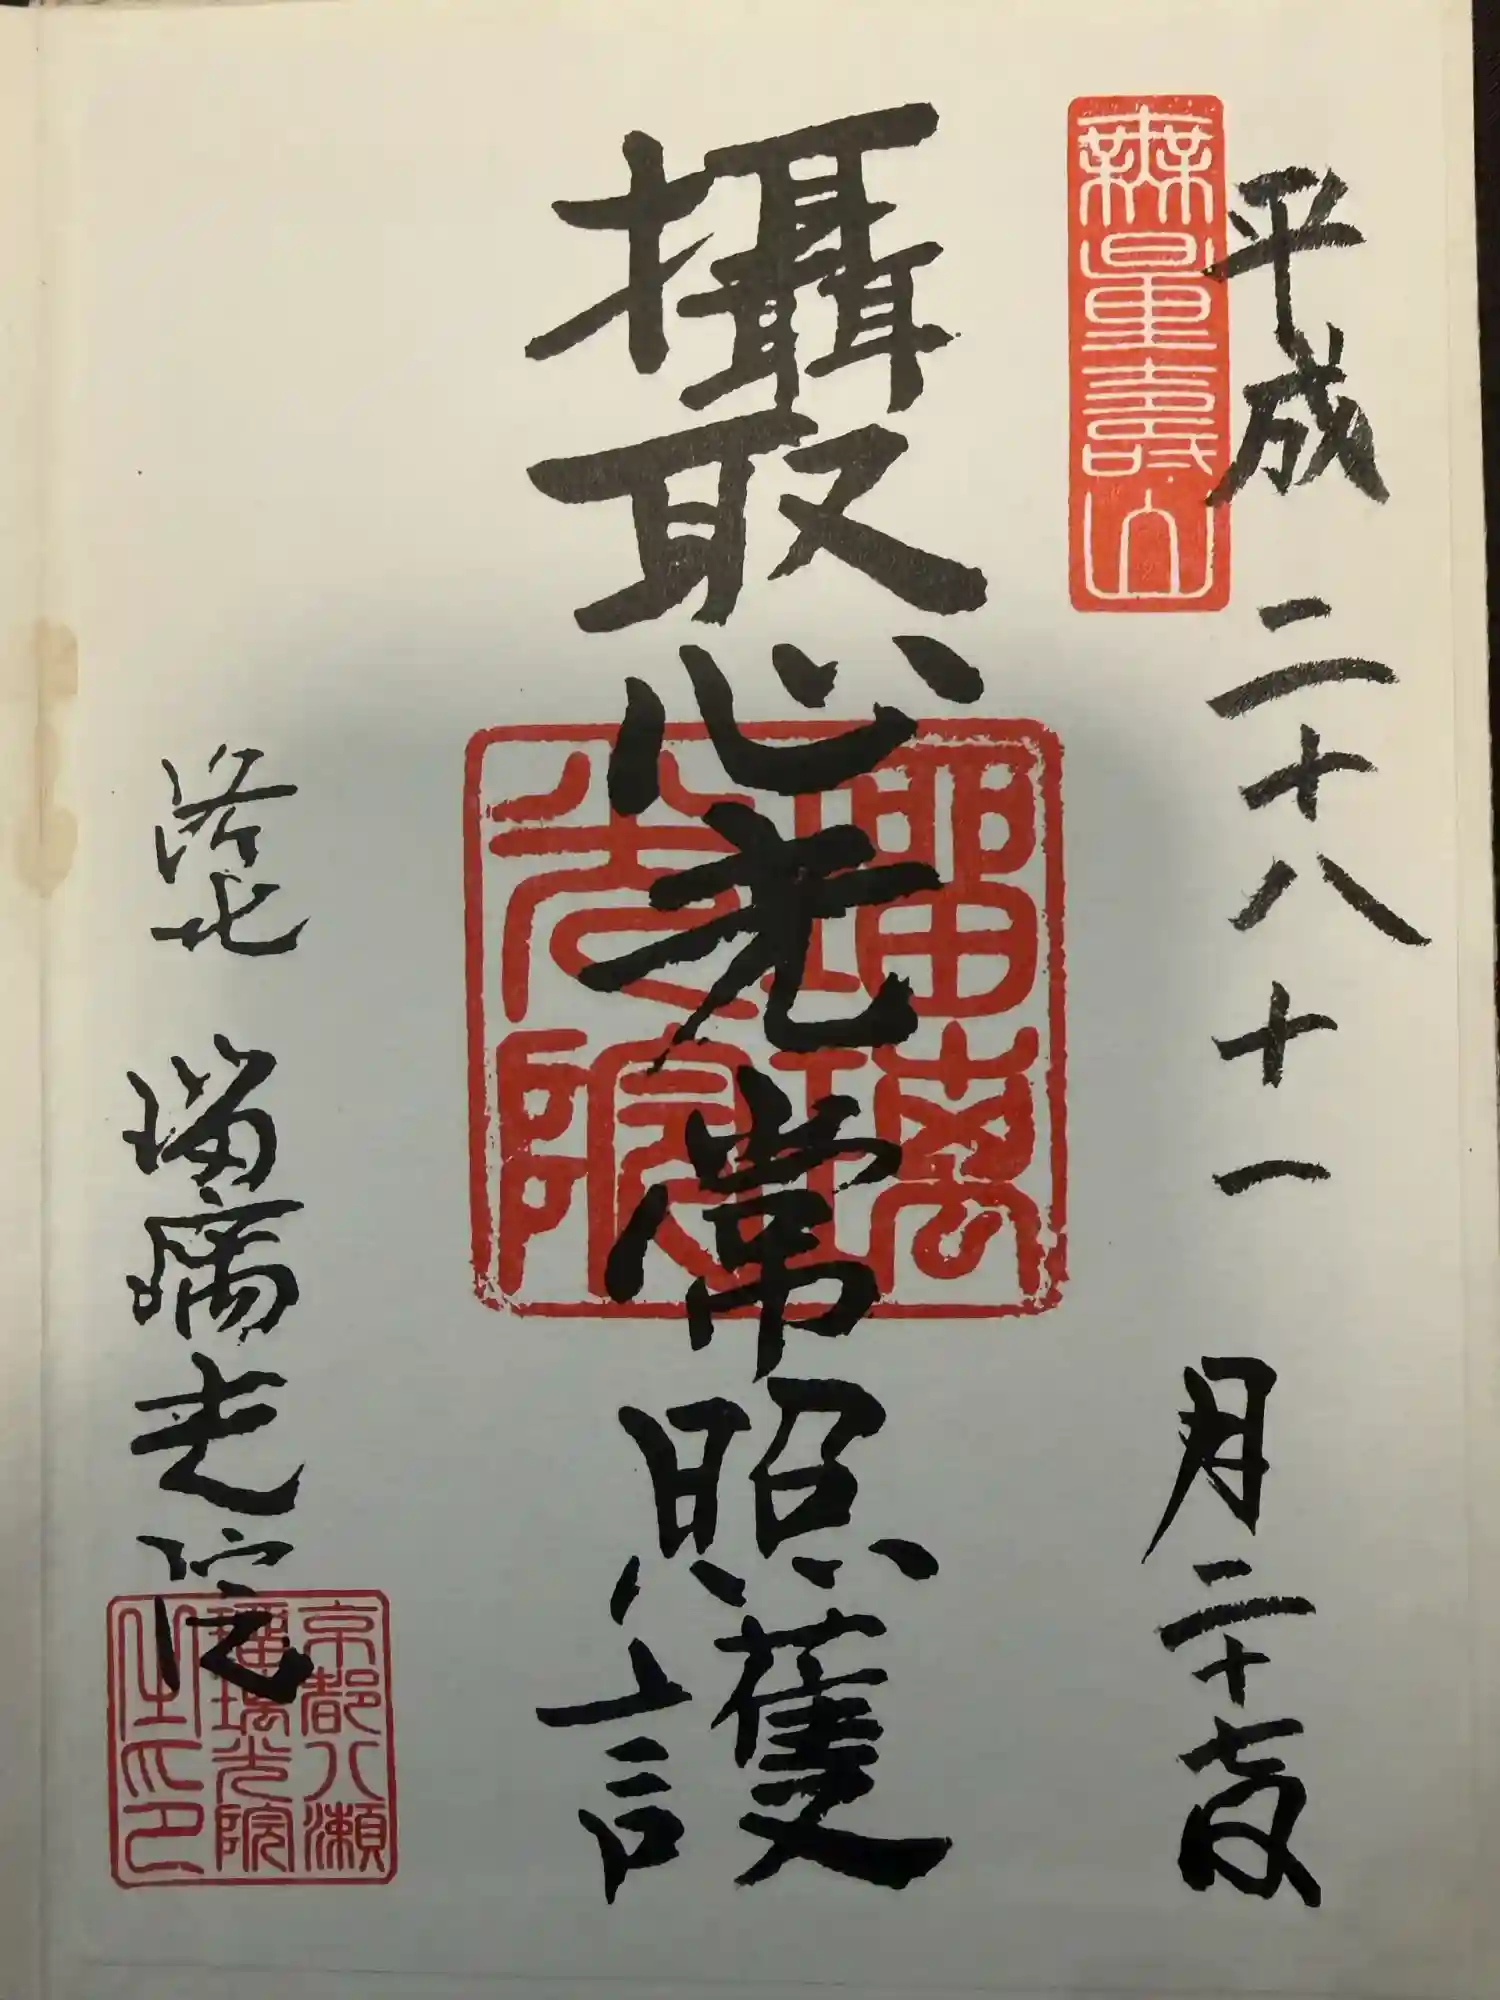 平成二十八十一月二十七日
無量壽山
攝取心光常照護
瑠璃
光院
洛北 瑠璃光院
京都八瀬
瑠璃光院
之印